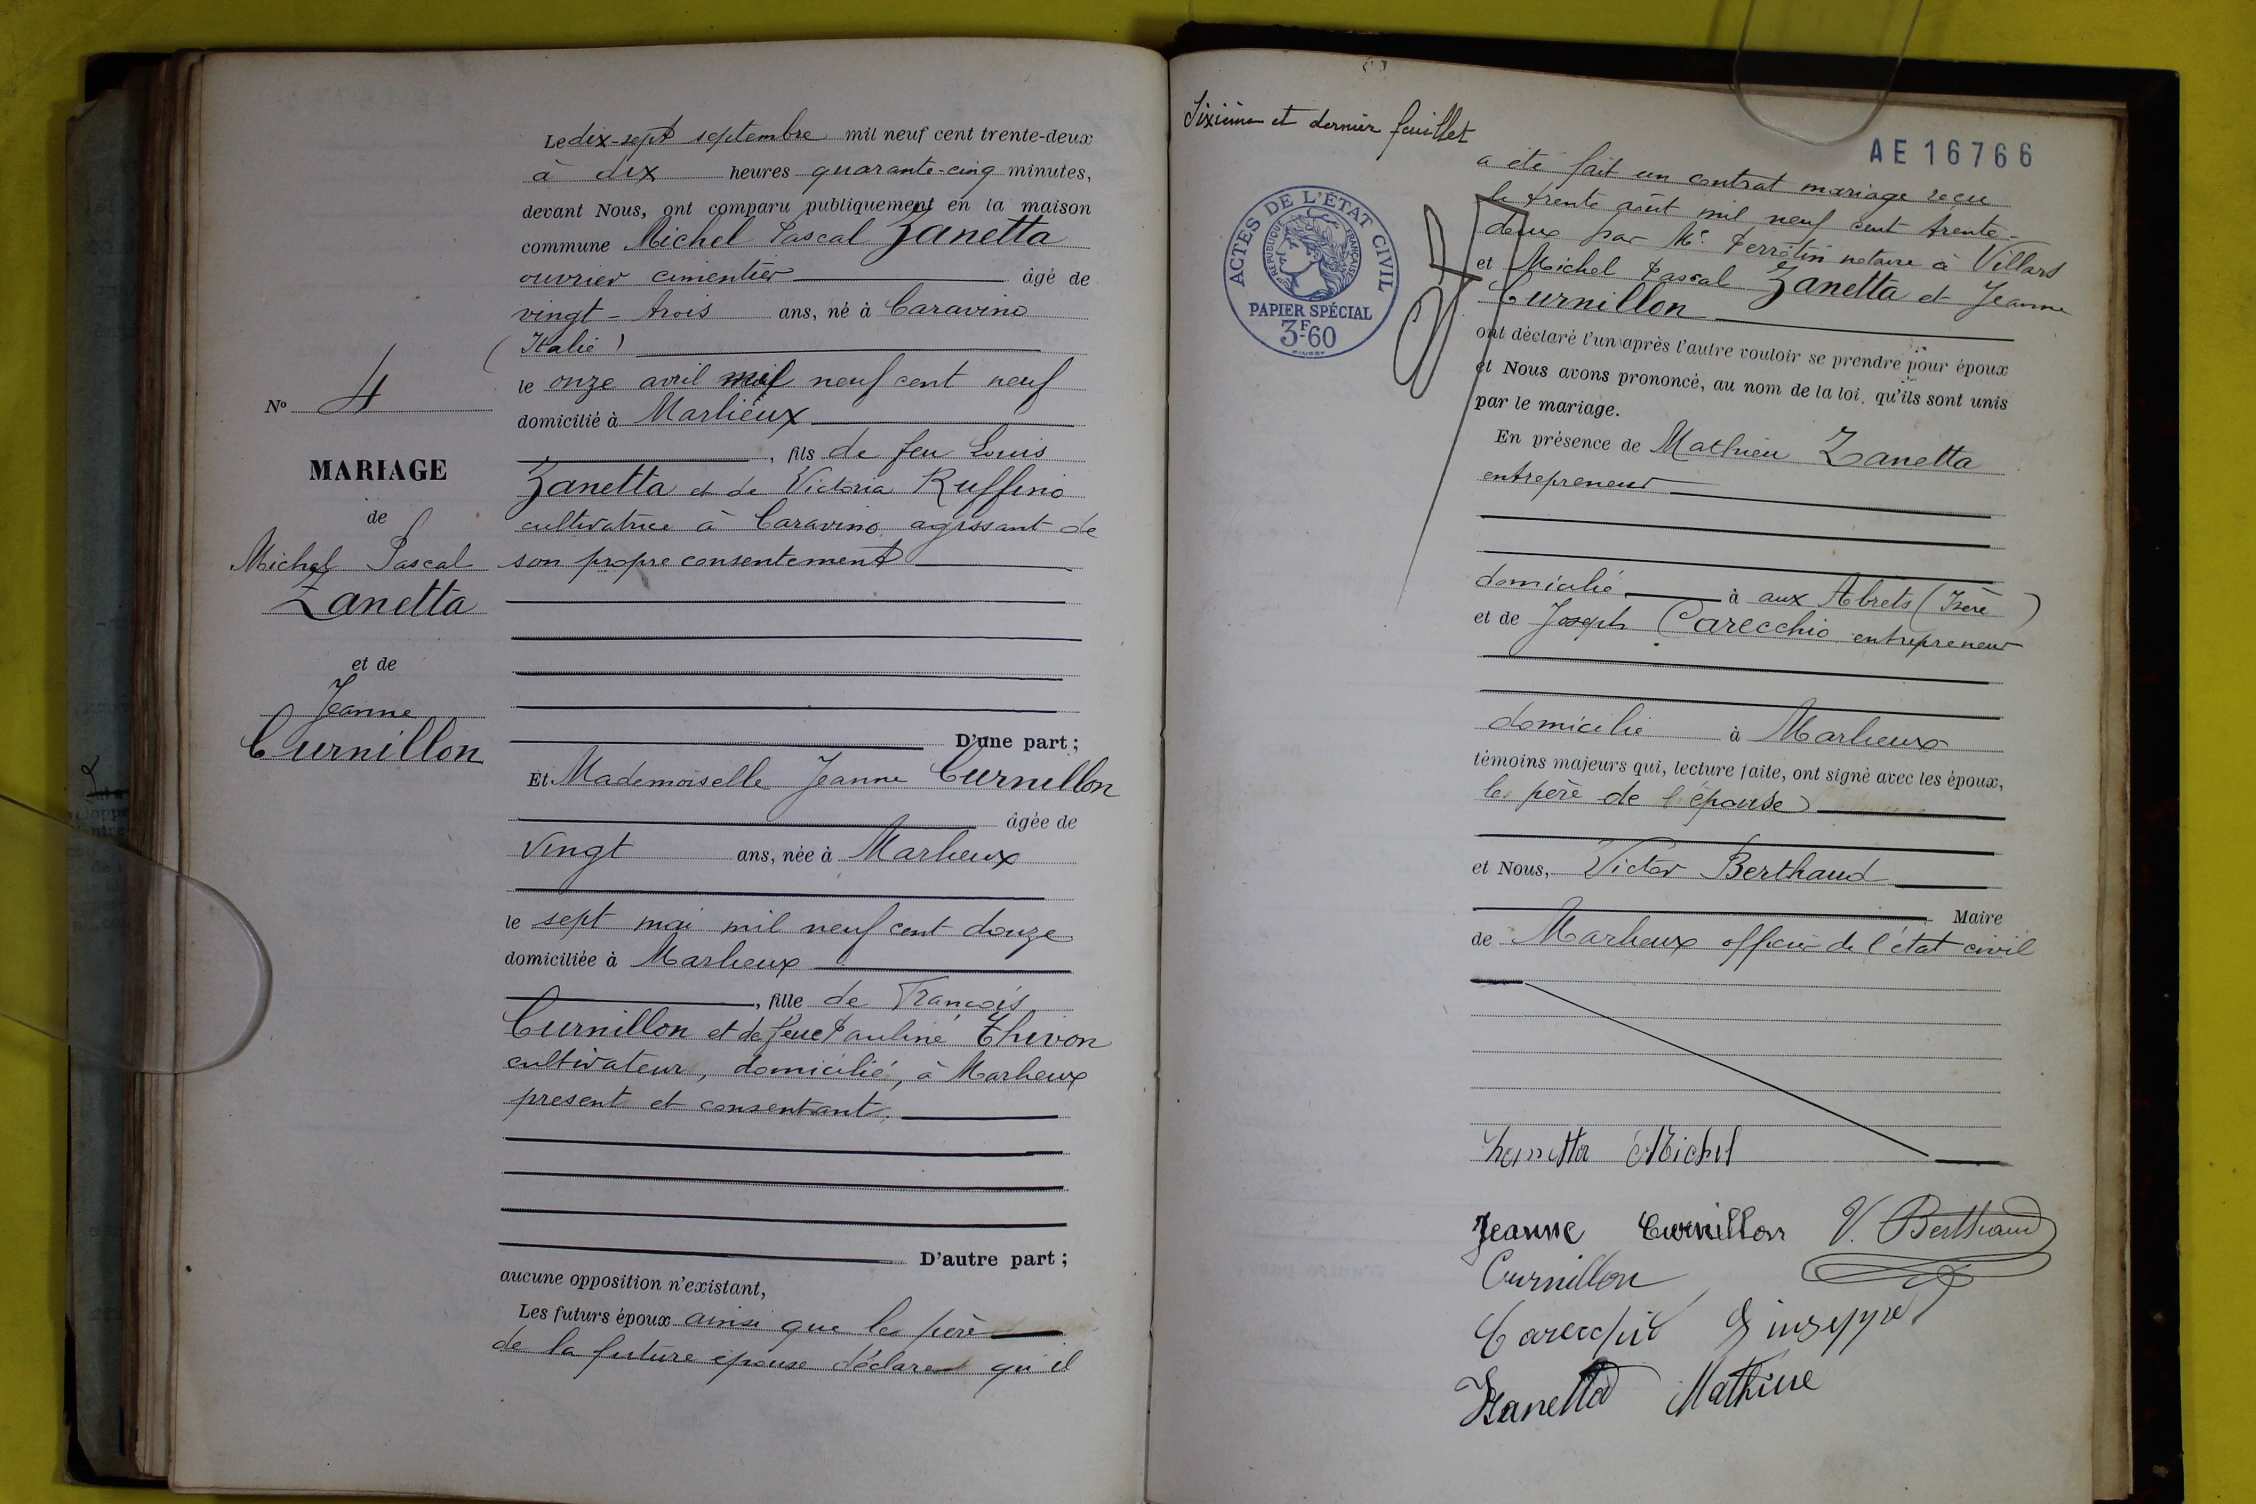 Le dix-sept septembre mil neuf cent trente-deux
à dix heures quarante-cinq minutes,
devant Nous, ont comparu publiquement en la maison
commune Michel Pascal Zanetta
ouvrier cimentier âgé de
vingt-trois ans, né à Caravino
(Italie)
le onze avril mil neuf cent neuf
domicilié à Marlieux
, fils de feu Louis
Zanetta et de Victoria Ruffino
cultivatrice à Caravino agissant de
son propre consentement
D'une part ;
Nº 4
MARIAGE
de
Michel Pascal
Zanetta
et de
Jeanne
Curnillon
Et Mademoiselle Jeanne Curnillon
âgée de
vingt ans, née à Marlieux
le sept mai mil neuf cent douze
domiciliée à Marlieux
, fille de François
Curnillon et de feue Pauline Thivon
cultivateur, domicilié, à Marlieux
present et consentant.
D'autre part ;
aucune opposition n'existant,
Les futurs époux ainsi que le père
de la future épouse déclare qu'il
Sixième et dernier feuillet
AE 16766
ACTES DE L'ÉTAT CIVIL
RÉPUBLIQUE FRANÇAISE
PAPIER SPÉCIAL
3F60
a été fait un contrat mariage reçu
le trente août mil neuf cent trente-
deux par Me Perretin notaire à Villars
et Michel Pascal Zanetta et Jeanne
Curnillon
ont déclaré l'un après l'autre vouloir se prendre pour époux
et Nous avons prononcé, au nom de la loi, qu'ils sont unis
par le mariage.
En présence de Mathieu Zanetta
entrepreneur
domicilié à aux Abrets (Isère)
et de Joseph Carecchio entrepreneur
domicilié à Marlieux
témoins majeurs qui, lecture faite, ont signé avec les époux,
le père de l'épouse
et Nous, Victor Berthaud
Maire
de Marlieux officier de l'état civil
Michel
Jeanne Curnillon V. Berthaud
Curnillon
Carecchio Giuseppe
Zanetta Mathieu